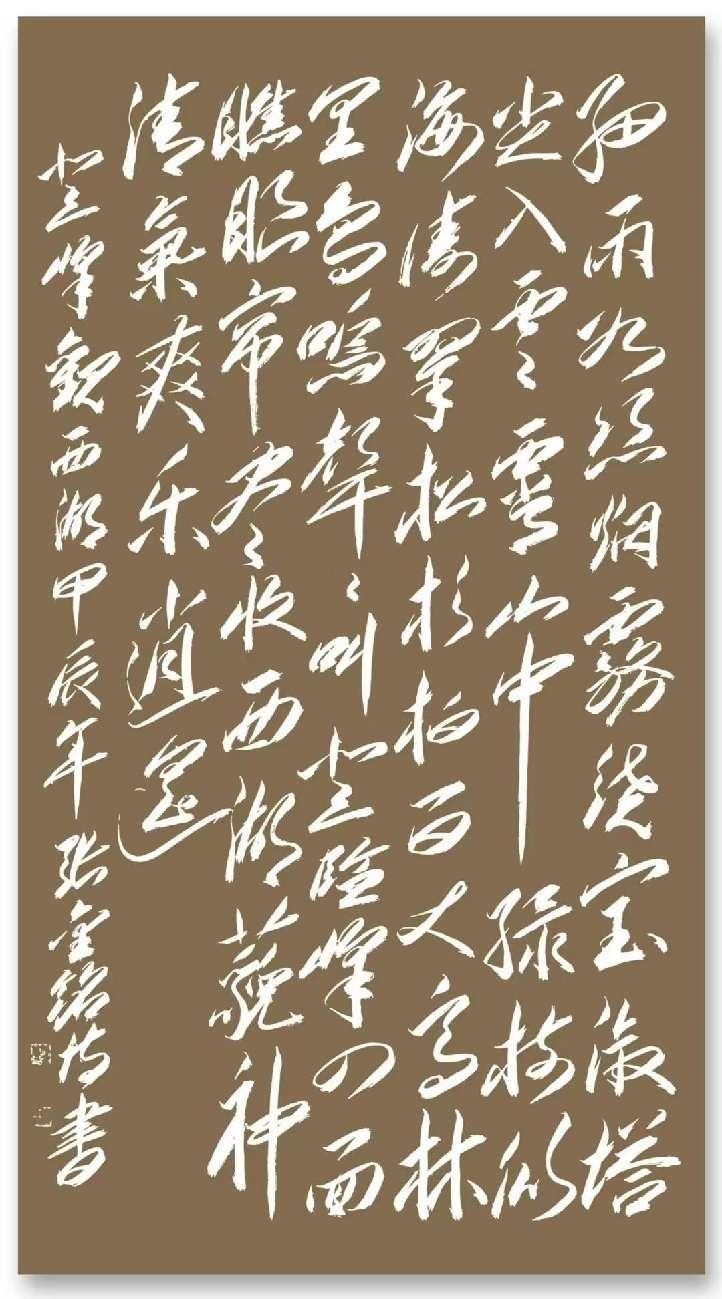 细雨如丝烟雾绕宝淑塔
尖入云云霄山中绿树似
海涛翠松杉柏百丈高林
里鸟鸣声声叫登险峰四面
瞧眼帘尽尽收西湖藐神
清气爽乐逍遥
登峰观西湖甲辰年张金铭诗书